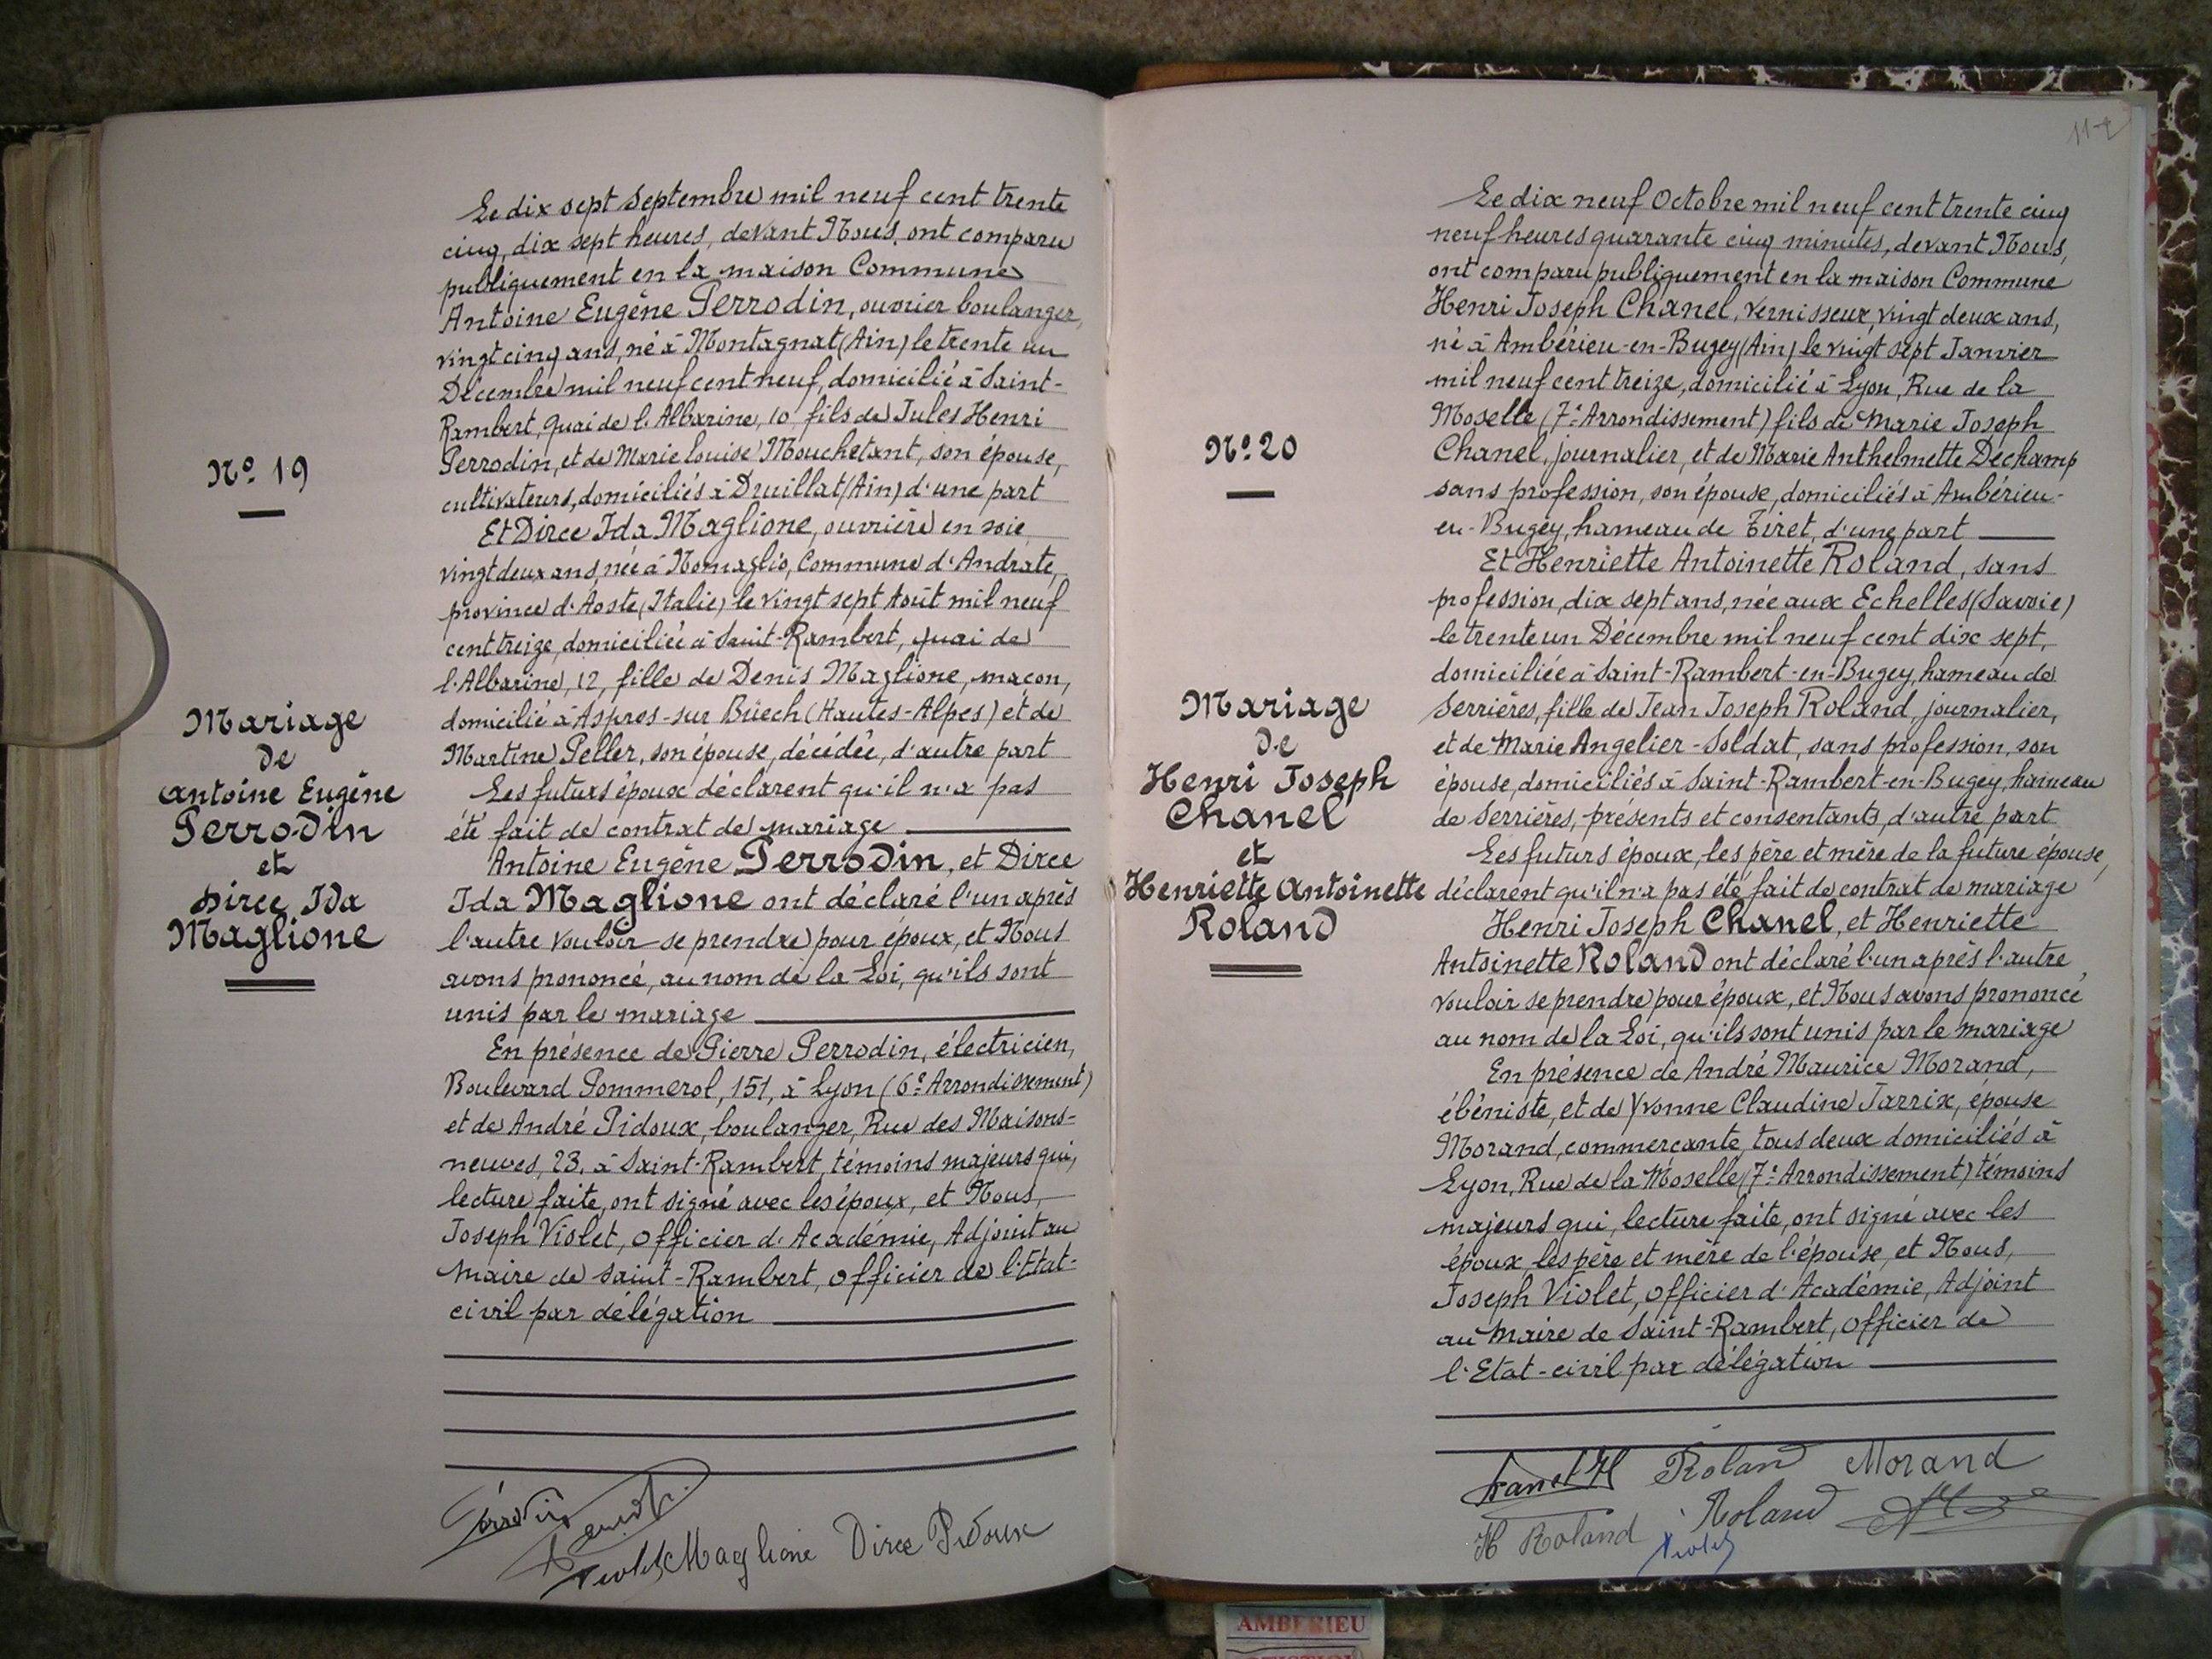 Le dix sept Septembre mil neuf cent trente
cinq, dix sept heures, devant Nous, ont comparu
publiquement en la maison Commune
Antoine Eugène Perrodin, ouvrier boulanger,
vingt cinq ans, né à Montagnat (Ain) le trente un
Décembre mil neuf cent neuf, domicilié à Saint-
Rambert, quai de l'Albarine, 10, fils de Jules Henri
Perrodin, et de Marie Louise Mouchetant, son épouse,
cultivateurs, domiciliés à Druillat (Ain) d'une part
Et Dirce Ida Maglione, ouvrière en soie,
vingt deux ans, née à Nomaglio, Commune d'Andrate,
province d'Aoste (Italie) le vingt sept Août mil neuf
cent treize, domiciliée à Saint-Rambert, quai de
l'Albarine, 12, fille de Denis Maglione, maçon,
domicilié à Aspres-sur Büech (Hautes-Alpes) et de
Martine Peller, son épouse, décédée, d'autre part
Les futurs époux déclarent qu'il n'a pas
été fait de contrat de mariage
Antoine Eugène Perrodin, et Dirce
Ida Maglione ont déclaré l'un après
l'autre vouloir se prendre pour époux, et Nous
avons prononcé, au nom de la Loi, qu'ils sont
unis par le mariage
En présence de Pierre Perrodin, électricien,
Boulevard Pommerol, 151, à Lyon (6e Arrondissement)
et de André Pidoux, boulanger, Rue des Maisons-
neuves, 23, à Saint-Rambert, témoins majeurs qui,
lecture faite, ont signé avec les époux, et Nous,
Joseph Violet, Officier d'Académie, Adjoint au
Maire de Saint-Rambert, Officier de l'Etat-
civil par délégation
No 19
Mariage
de
Antoine Eugène
Perrodin
et
Dirce Ida
Maglione
Perrodin
Violet Maglione Dirce Pidoux
Le dix neuf Octobre mil neuf cent trente cinq
neuf heures quarante cinq minutes, devant Nous,
ont comparu publiquement en la maison Commune
Henri Joseph Chanel, vernisseur, vingt deux ans,
né à Ambérieu-en-Bugey (Ain) le vingt sept Janvier
mil neuf cent treize, domicilié à Lyon, Rue de la
Moselle (7e Arrondissement) fils de Marie Joseph
Chanel, journalier, et de Marie Anthelmette Déchamp
sans profession, son épouse, domiciliés à Ambérieu-
en-Bugey, hameau de Tiret, d'une part
Et Henriette Antoinette Roland, sans
profession, dix sept ans, née aux Echelles (Savoie)
le trente un Décembre mil neuf cent dix sept,
domiciliée à Saint-Rambert-en-Bugey, hameau de
Serrières, fille de Jean Joseph Roland, journalier,
et de Marie Angelier-Soldat, sans profession, son
épouse, domiciliés à Saint-Rambert-en-Bugey, hameau
de Serrières, présents et consentants, d'autre part
Les futurs époux, les père et mère de la future épouse,
déclarent qu'il n'a pas été fait de contrat de mariage
Henri Joseph Chanel, et Henriette
Antoinette Roland ont déclaré l'un après l'autre
vouloir se prendre pour époux, et Nous avons prononcé
au nom de la Loi, qu'ils sont unis par le mariage
En présence de André Maurice Morand,
ébéniste, et de Yvonne Claudine Tarrix, épouse
Morand, commerçante, tous deux domiciliés à
Lyon, Rue de la Moselle (7e Arrondissement) témoins
majeurs qui, lecture faite, ont signé avec les
époux, les père et mère de l'épouse, et Nous,
Joseph Violet, Officier d'Académie, Adjoint
au Maire de Saint-Rambert, Officier de
l'Etat-civil par délégation
No 20
Mariage
de
Henri Joseph
Chanel
et
Henriette Antoinette
Roland
Chanel H Roland Morand
H Roland Violet Roland
AMBERIEU